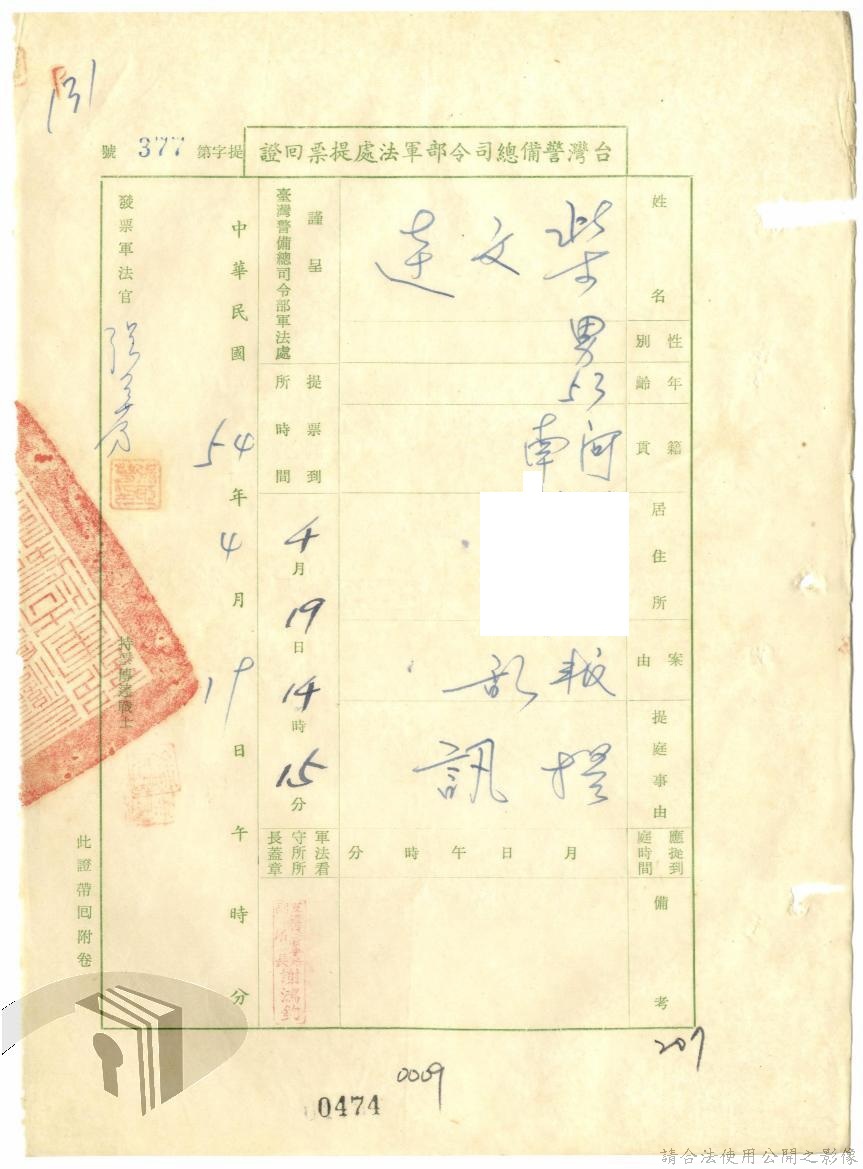 131
台灣警備總司令部軍法處提票回證
提字第 377 號
姓名
柴文達
性別
男
年齡
53
籍貫
河南
居住所
案由
叛亂
提庭事由
提訊
應提到庭時間
月 日 午 時 分
備考
謹呈
臺灣警備總司令部軍法處
提票到所時間
4月19日14時15分
軍法看守所所長蓋章
謝鴻鈞
中華民國54年4月19日 午 時 分
發票軍法官
持票傳達戰士
此證帶回附卷
207
0009
0474
請合法使用公開之影像